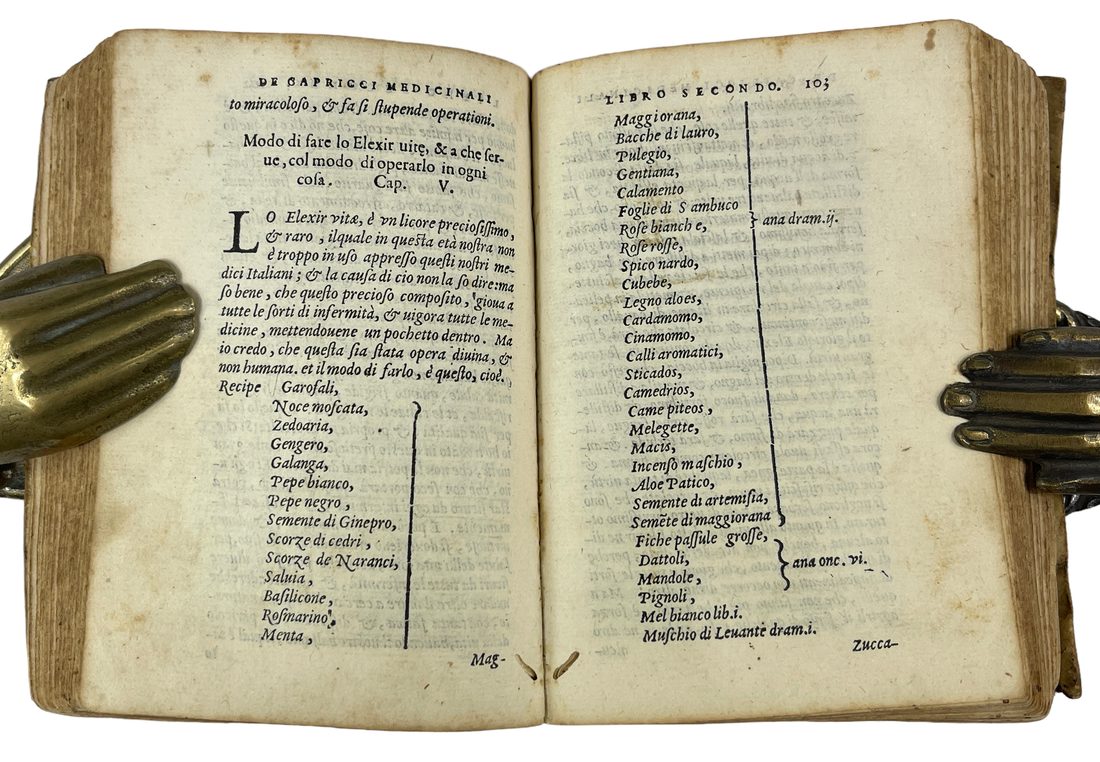 DE CAPRICCI MEDICINALI
to miracoloso, & fa si stupende operationi.
Modo di fare lo Elexir uitę, & a che ser-
ue, col modo di operarlo in ogni
cosa. Cap. V.
LO Elexir vitæ, è vn licore preciosissimo,
& raro, ilquale in questa età nostra non
è troppo in uso appresso questi nostri me-
dici Italiani; & la causa di cio non la so dire: ma
so bene, che questo precioso composito, gioua a
tutte le sorti di infermità, & uigora tutte le me-
dicine, mettendouene un pochetto dentro. Ma
io credo, che questa sia stata opera diuina, &
non humana. et il modo di farlo, è questo, cioè.
Recipe Garofali,
Noce moscata,
Zedoaria,
Gengero,
Galanga,
Pepe bianco,
Pepe negro,
Semente di Ginepro,
Scorze di cedri,
Scorze de Naranci,
Saluia,
Basilicone,
Rosmarino,
Menta,
Mag-
LIBRO SECONDO. 103
Maggiorana,
Bacche di lauro,
Pulegio,
Gentiana,
Calamento
Foglie di Sambuco
Rose bianche, } ana dram.ij.
Rose rosse,
Spico nardo,
Cubebe,
Legno aloes,
Cardamomo,
Cinamomo,
Calli aromatici,
Sticados,
Camedrios,
Came piteos,
Melegette,
Macis,
Incenso maschio,
Aloe Patico,
Semente di artemisia,
Semẽte di maggiorana
Fiche passule grosse,
Dattoli, } ana onc. vi.
Mandole,
Pignoli,
Mel bianco lib.i.
Muschio di Leuante dram.i.
Zucca-